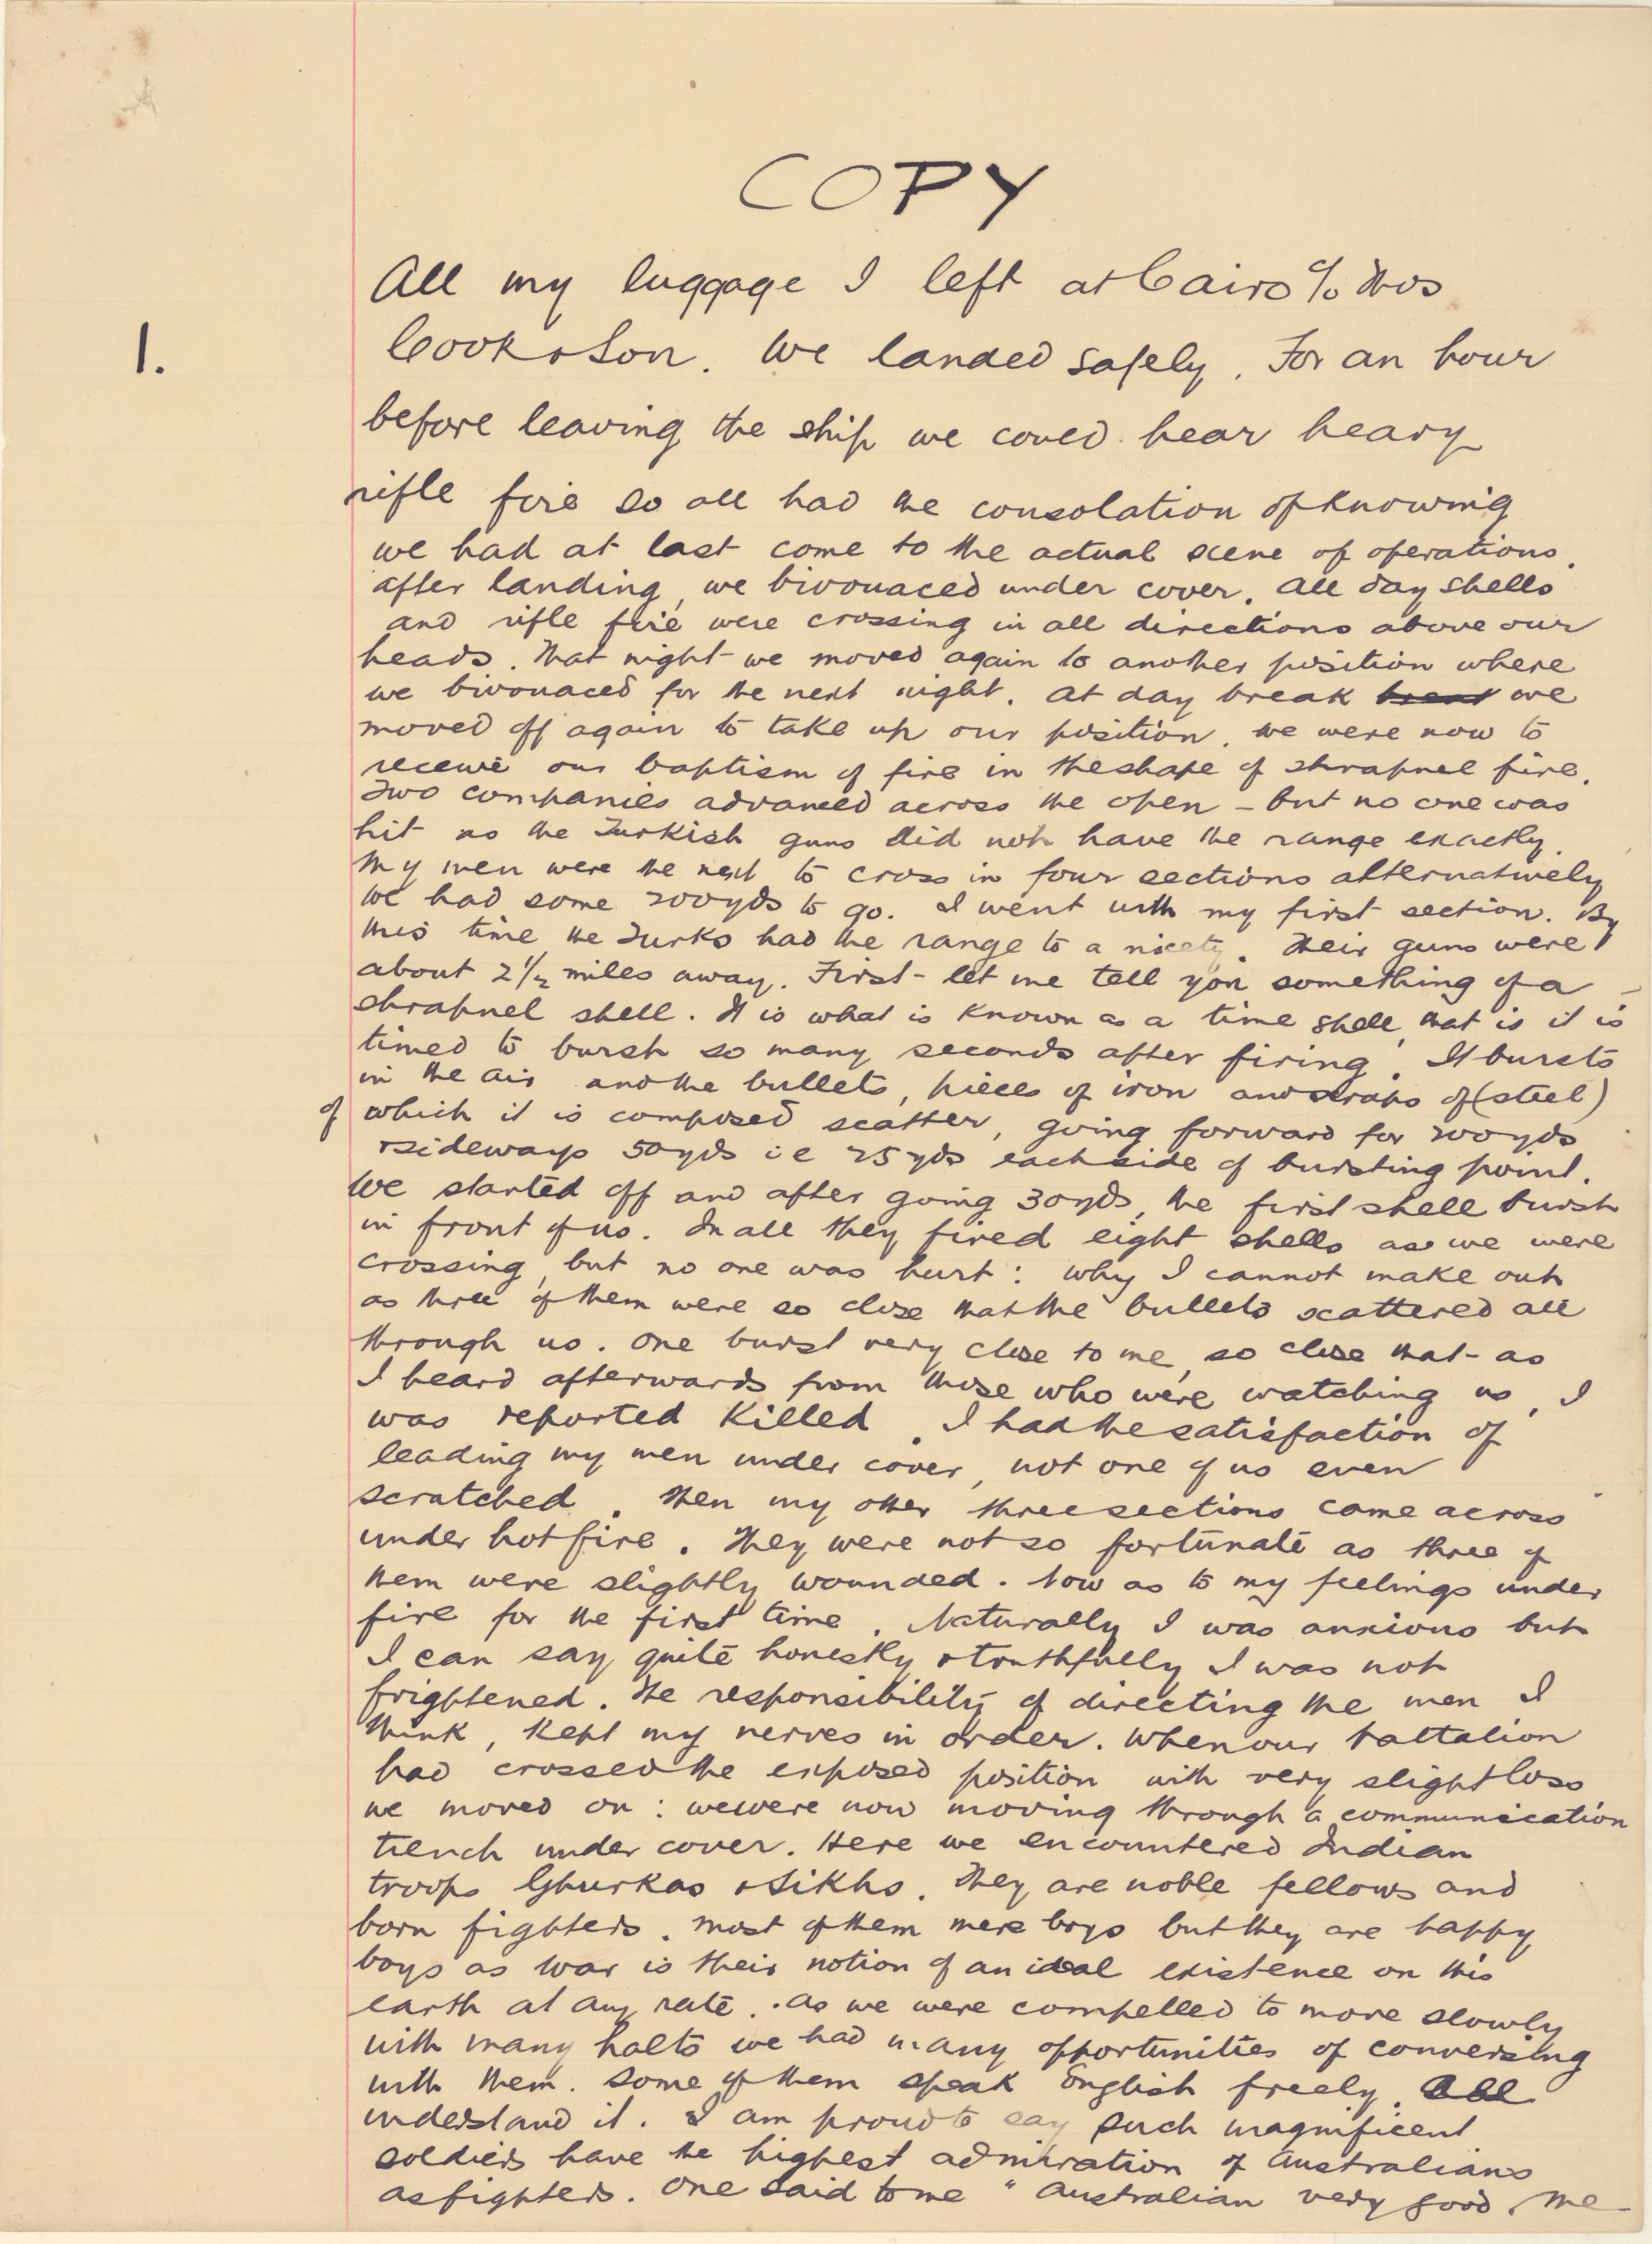 COPY
1.
All my luggage I left at Cairo c/o Thos
Cook & Son. We landed safely. For an hour
before leaving the ship we could hear heavy
rifle fire so all had the consolation of knowing
we had at last come to the actual scene of operations.
after landing, we bivouaced under cover. All day shells
and rifle fire were crossing in all directions above our
heads. That night we moved again to another position where
we bivouaced for the next night. At day break we
moved off again to take up our position. We were now to
receive our baptism of fire in the shape of shrapnel fire.
Two companies advanced across the open - but no one was
hit as the Turkish guns did not have the range exactly.
My men were the next to cross in four sections alternatively
we had some 200yds to go. I went with my first section. By
this time the Turks had the range to a nicety. Their guns were
about 2 1/2 miles away. First - let me tell you something of a
shrapnel shell. It is what is known as a time shell, that is it is
timed to burst so many seconds after firing. It bursts
in the air and the bullets, pieces of iron and scraps of (steel)
of which it is composed scatter, going forward for 200yds
sideways 50yds i e 25 yds each side of bursting point.
We started off and after going 30yds, the first shell burst
in front of us. In all they fired eight shells as we were
crossing, but no one was hurt: why I cannot make out
as three of them were so close that the bullets scattered all
through us. One burst very close to me, so close that - as
I heard afterwards from those who were watching us, I
was reported killed. I had the satisfaction of
leading my men under cover, not one of us even
scratched. Then my other three sections came across
under hot fire. They were not so fortunate as three of
them were slightly wounded. Now as to my feelings under
fire for the first time. Naturally I was anxious but
I can say quite honestly & truthfully I was not
frightened. The responsibility of directing the men I
think, kept my nerves in order. When our battalion
had crossed the exposed position with very slight loss
we moved on: we were now moving through a communication
trench under cover. Here we encountered Indian
troops Ghurkas & Sikhs. They are noble fellows and
born fighters. Most of them mere boys but they are happy
boys as war is their notion of an ideal existence on this
earth at any rate. As we were compelled to move slowly
with many halts we had many opportunities of conversing
with them. Some of them speak English freely. All
understand it. I am proud to say such magnificent
soldiers have the highest admiration of Australians
as fighters. One said to me "Australian very good, me